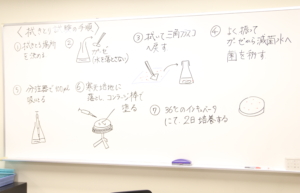 〈拭きとり検査の手順〉
① 拭きとる場所
を決める
②
ガーゼ
(水を落とさない)
③ 拭いて三角フラスコ
へ戻す
④ よく振って
ガーゼから滅菌水へ
菌を移す
⑤
吸いとる
⑥ 寒天培地に
落とし、コンラージ棒で
塗る
⑦ 36℃のインキュベータ
にて、2日培養する